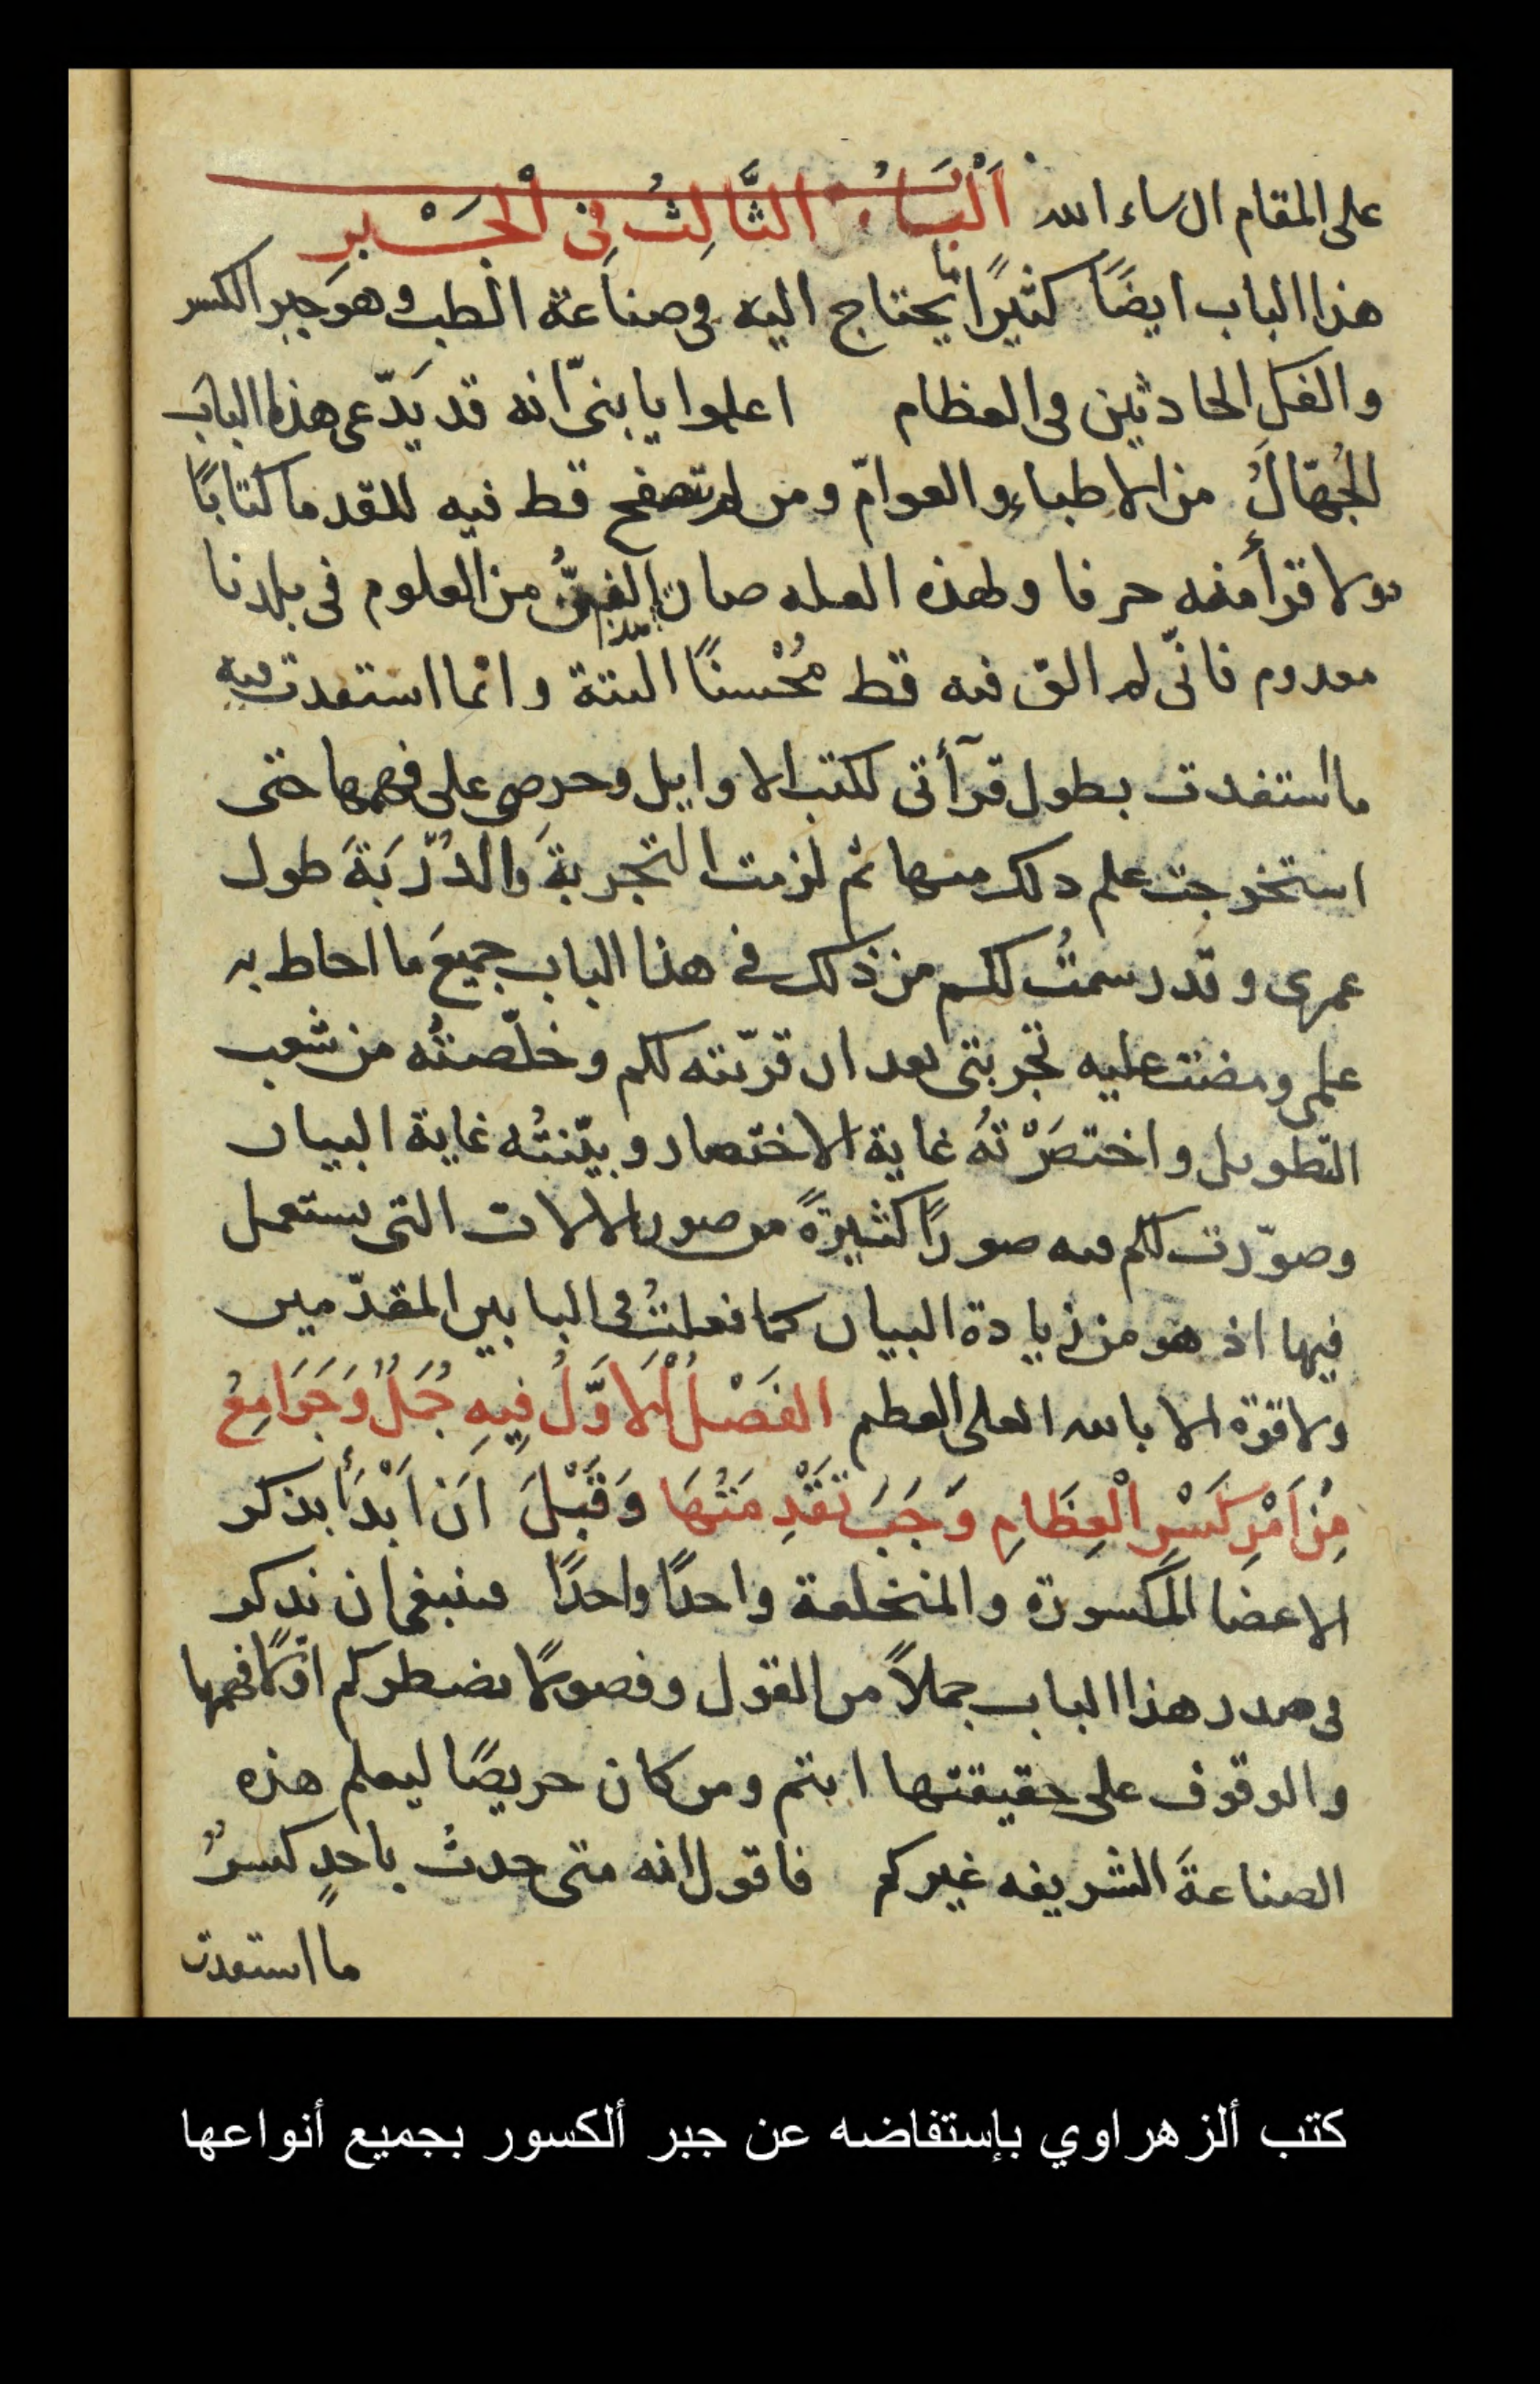 على المقام ان ساء الله اَلْبَابُ الثَّالِثُ فِى الْجَبْرِ
هذا الباب ايضًا كثيرًا ما يحتاج اليه فى صناعة الطب وهو جبر الكسر
والفك الحادثين فى العظام اعلموا يا بنىّ انه قد يَدّعى هذا البابَ
الجُهّالُ من الاطباءِ والعوامّ ومن لم يتصفح قط فيه للقدما كتابًا
ولا قرأ منه حرفا ولهذه العله صار الفنُّ من العلوم فى بلدنا
معدوم فانّى لم الق فيه قط مُحْسنًا البتة وانما استفدت فيه
ما استفدت بطول قرآأتى لكتب الاوايل وحرصى على فهمها حتى
استخرجت علم ذلك منها ثم لزمت التجربةَ والدُّرْبَةَ طول
عمرى وقد رسمتُ لكم من ذلك فى هذا الباب جميعَ ما احاط به
علمى ومضت عليه تجربتى بعد ان قرّبته لكم وخلّصتُه من شعب
التطويل واختصَرْتهُ غاية الاختصار وبيّنتُه غاية البيان
وصوّرت لكم فيه صورًا كثيرةً من صور الالات التى يستعمل
فيها اذ هو من زيادة البيان كما فعلتُ فى البابين المقدّمين
ولا قوّة الا بالله العلى العظيم الفَصْلُ الْاَوَّلُ فِيهِ جُمَلٌ وَجَوَامِعُ
مِنْ اَمْرِ كَسْرِ الْعِظَامِ وَجَبَ تَقْدِمَتُهَا وَقَبْلَ اَن اَبْدَأَ بذكر
الاعضا المكسورة والمنخلعة واحدًا واحدًا فينبغى ان نذكر
فى صدر هذا الباب جملاً من القول وفصولًا يضطركم اوّلًا فهمها
والوقوف على حقيقتها انتم ومن كان حريصًا ليعلم هذه
الصناعةَ الشريفه غيركم فاقول انه متى حدث باحدٍ كسرٌ
ما استفدت
كتب ألزهراوي بإستفاضه عن جبر ألكسور بجميع أنواعها